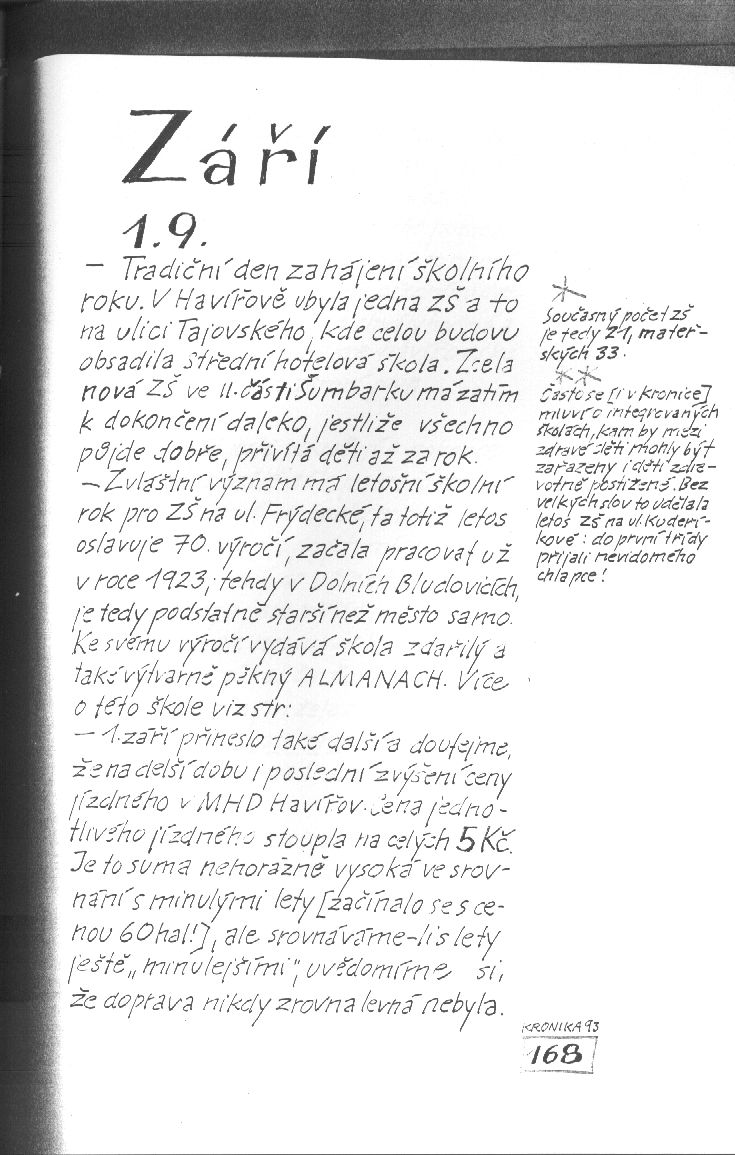 Září
1.9.
– Tradiční den zahájení školního
roku. V Havířově ubyla jedna ZŠ a to
na ulici Tajovského, kde celou budovu
obsadila Střední hotelová škola. Zcela
nová ZŠ ve II. části Šumbarku má zatím
k dokončení daleko, jestliže všechno
půjde dobře, přivítá děti až za rok.
– Zvláštní význam má letošní školní
rok pro ZŠ na ul. Frýdecké, ta totiž letos
oslavuje 70. výročí, začala pracovat už
v roce 1923, tehdy v Dolních Bludovicích,
je tedy podstatně starší než město samo.
Ke svému výročí vydává škola zdařilý a
také výtvarně pěkný ALMANACH. Více
o této škole viz str:
– 1. září přineslo také další a doufejme,
že na delší dobu i poslední zvýšení ceny
jízdného v MHD Havířov. Cena jedno-
tlivého jízdného stoupla na celých 5 Kč.
Je to suma nehorázně vysoká ve srov-
nání s minulými lety [začínalo se s ce-
nou 60 hal!], ale srovnáváme-li s lety
ještě „minulejšími", uvědomíme si,
že doprava nikdy zrovna levná nebyla.
*
Současný počet ZŠ
je tedy 21, mateř-
ských 33.
**
Často se [i v kronice]
mluví o integrovaných
školách, kam by mezi
zdravé děti mohly být
zařazeny i děti zdra-
votně postižené. Bez
velkých slov to udělala
letos ZŠ na ul. Kudeří-
kové: do první třídy
přijali nevidomého
chlapce!
KRONIKA 93
168